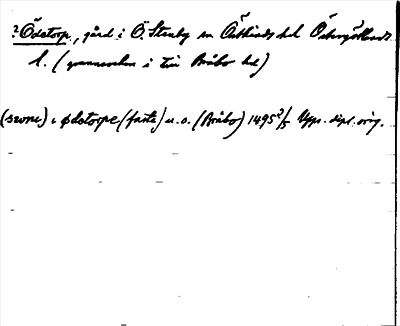 ? Ödetorp, gård i Ö. Stenby sn Östkinds hd Östergötlands
l. (grannsocken i till Bråbo hd)
(swone) i ødetorpe (faste) u.o. (Bråbo) 1495 2/5 Upps. dipl. orig.